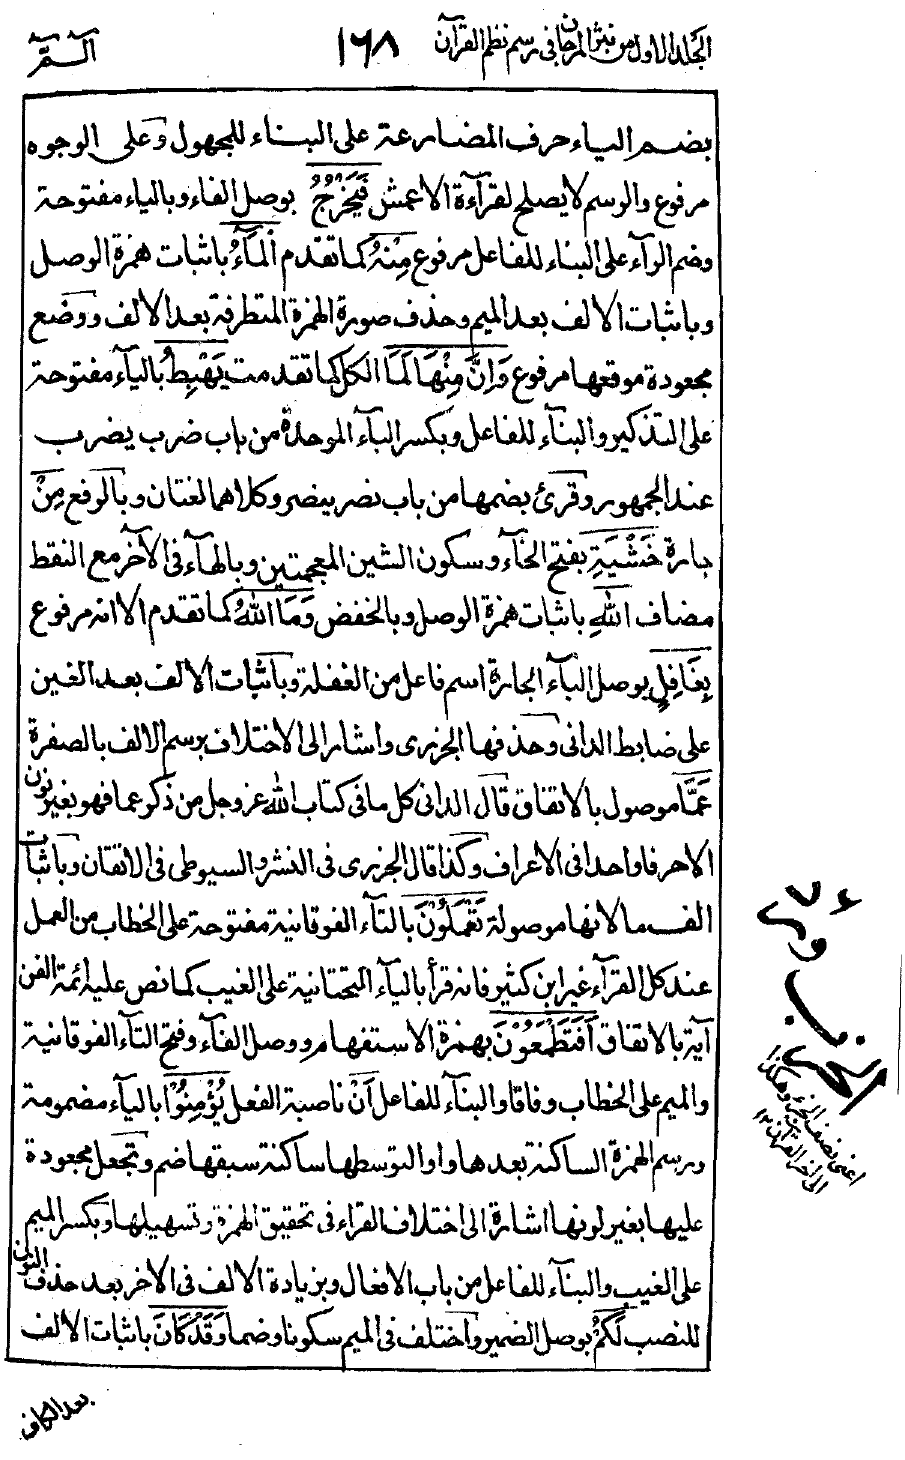 الجلد الاول من نثر المرجان في رسم نظم القرآن ١٦٨ الٓـمّٓ
بضم الياء حرف المضارعة على البناء للمجهول وعلى الوجوه
مرفوع والرسم لا يصلح لقرآءة الاعمش فَيَخْرُجُ بوصل الفاء وبالياء مفتوحة
وضم الرآء على البناء للفاعل مرفوع مِنْهُ كما تقدم الْمَآءُ باثبات همزة الوصل
وباثبات الالف بعد الميم وحذف صورة الهمزة المتطرفة بعد الالف ووضع
مجعودة موقعها مرفوع وَاِنَّ مِنْهَا لَمَا الكل كما تقدمت يَهْبِطُ بالياء مفتوحة
على التذكير والبنآء للفاعل وبكسر البآء الموحدة من باب ضرب يضرب
عند الجمهور وقرئ بضمها من باب نصر ينصر وكلاهما لغتان وبالرفع مِنْ
جارة خَشْيَةِ بفتح الخآء وسكون الشين المعجمتين وبالهآء في الآخر مع النقط
مضاف اللهِ باثبات همزة الوصل وبالخفض وَمَا اللهُ كما تقدم الا انه مرفوع
بِغَافِلٍ بوصل البآء الجارة اسم فاعل من الغفلة وباثبات الالف بعد الغين
على ضابط الدانى وحذفها الجزرى واشار الى الاختلاف برسم الالف بالصفرة
عَمَّا موصول بالاتفاق قال الدانى كل ما في كتاب الله عز وجل من ذكر عما فهو بغير نون
الاحرفا واحدا في الاعراف وكذا قال الجزرى في النشر والسيوطى في الاتقان وباثبات
الف ما لانها موصولة تَعْمَلُوْنَ بالتآء الفوقانية مفتوحة على الخطاب من العمل
عند كل القرآء غير ابن كثير فانه قرأ بالياء التحتانية على الغيب كما نص عليه ائمة الفن
آية بالاتفاق اَفَتَطْمَعُوْنَ بهمزة الاستفهام ووصل الفآء وفتح التآء الفوقانية
والميم على الخطاب وفاقا والبنآء للفاعل اَنْ ناصبة الفعل يُؤْمِنُوْا بالياء مضمومة
ورسم الهمزة الساكنة بعدها واوا لتوسطها ساكنة سبقها ضم وتجعل مجعودة
عليها بغير لونها اشارة الى اختلاف القراء في تحقيق الهمزة وتسهيلها وبكسر الميم
على الغيب والبنآء للفاعل من باب الافعال وبزيادة الالف في الاخر بعد حذف النون
للنصب لَكُمْ بوصل الضمير واختلف في الميم سكونا وضما وَقَدْ كَانَ باثبات الالف
بعد الكاف
الحزب
اعنى نصف الجزء وهكذا
الى آخر القرآن ١٢